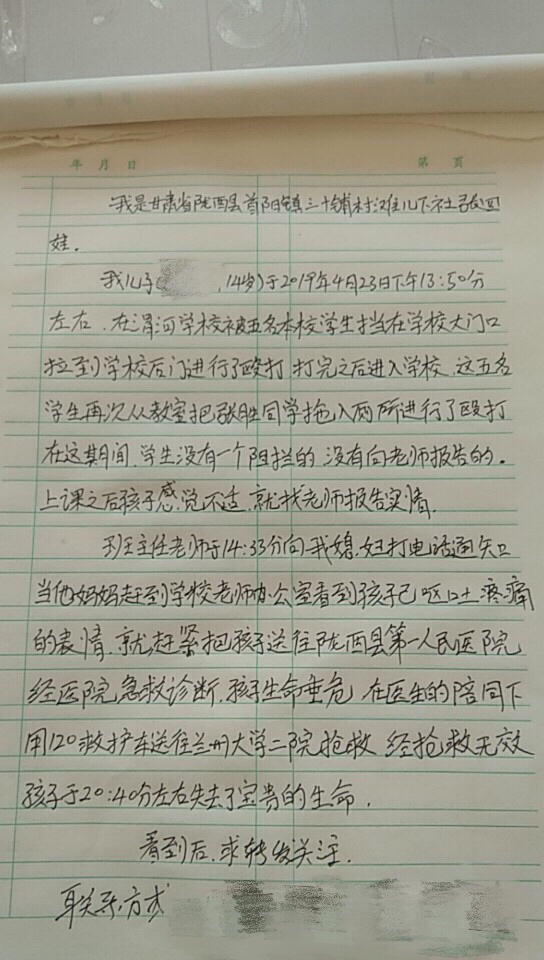 年 月 日 第 页
我是甘肃省陇西县首阳镇三十铺村滩儿下社张四
娃.
我儿子( ,14岁)于2019年4月23日下午13:50分
左右.在渭河学校被五名本校学生挡在学校大门口
拉到学校后门进行了殴打 打完之后进入学校.这五名
学生再次从教室把张胜同学拖入厕所进行了殴打
在这期间.学生没有一个阻拦的.没有向老师报告的。
上课之后孩子感觉不适.就找老师报告实情.
班主任老师于14:33分向我媳妇打电话通知
当他妈妈赶到学校老师办公室看到孩子已呕吐疼痛
的表情.就赶紧把孩子送往陇西县第一人民医院
经医院急救诊断.孩子生命垂危 在医生的陪同下
用120救护车送往兰州大学二院抢救 经抢救无效
孩子于20:40分左右失去了宝贵的生命.
看到后.求转发关注.
联系方式